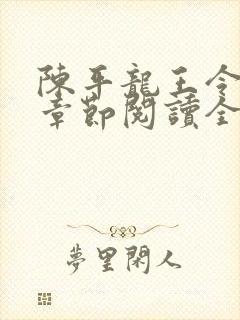 陳平龍王令
章節閱讀全
夢里閑人